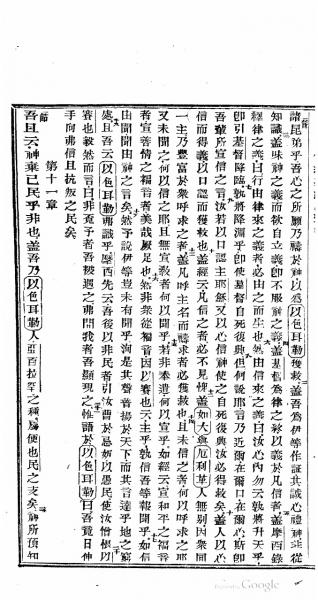 諸昆弟乎吾心之所願乃禱於神以為以色耳勒獲救蓋吾為伊等作証其誠心禮神並從
知識蓋昧神之義又欲自立義即不服神之義蓋基督為律之終以義於凡信者蓋摩西錄
經律之義曰行由律來之義者必由之而生也然由信來之義曰汝心內勿云孰將升天乎
即引基督降臨孰將降淵乎即使基督自死後興但何說耶言乃近爾在爾口在爾心斯即
吾輩所宣信之言汝若以口認主耶穌又以心信神使之自死後興汝必獲救蓋人以心
信而得義以口認而獲救也蓋經云凡信之者必不見愧蓋如大與厄利革人無別因眾同
一主乃豐富於眾呼求之者蓋凡呼主名而禱求者必獲救也且未信之者何以呼求之耶
又未聞之何以信之耶且無宣教者何以聞耶若非奉遣何以宣乎如經云宣和平之福音
者宣善情之福音者美哉厥足也然非眾從福音因以賽也云主乎孰信吾等報聞乎如信
由聞聞由神之言矣然予說伊等豈未有聞乎洵是其聲音揚於天下而其言達乎地之窮
處且吾云以色耳勒弗識乎摩西先云吾後以非民者引汝曹於忌妒以愚民使汝憎恨以
賽也毅然而言曰非覓予者吾被遇之弗問我者吾顯現之惟語於以色耳勒曰吾竟日伸
手向弗信且抗叛之民矣
第十一章
吾且云神棄己民乎非也蓋吾乃以色耳勒人亞百拉罕之種屬便也民之支矣神所預知
Google